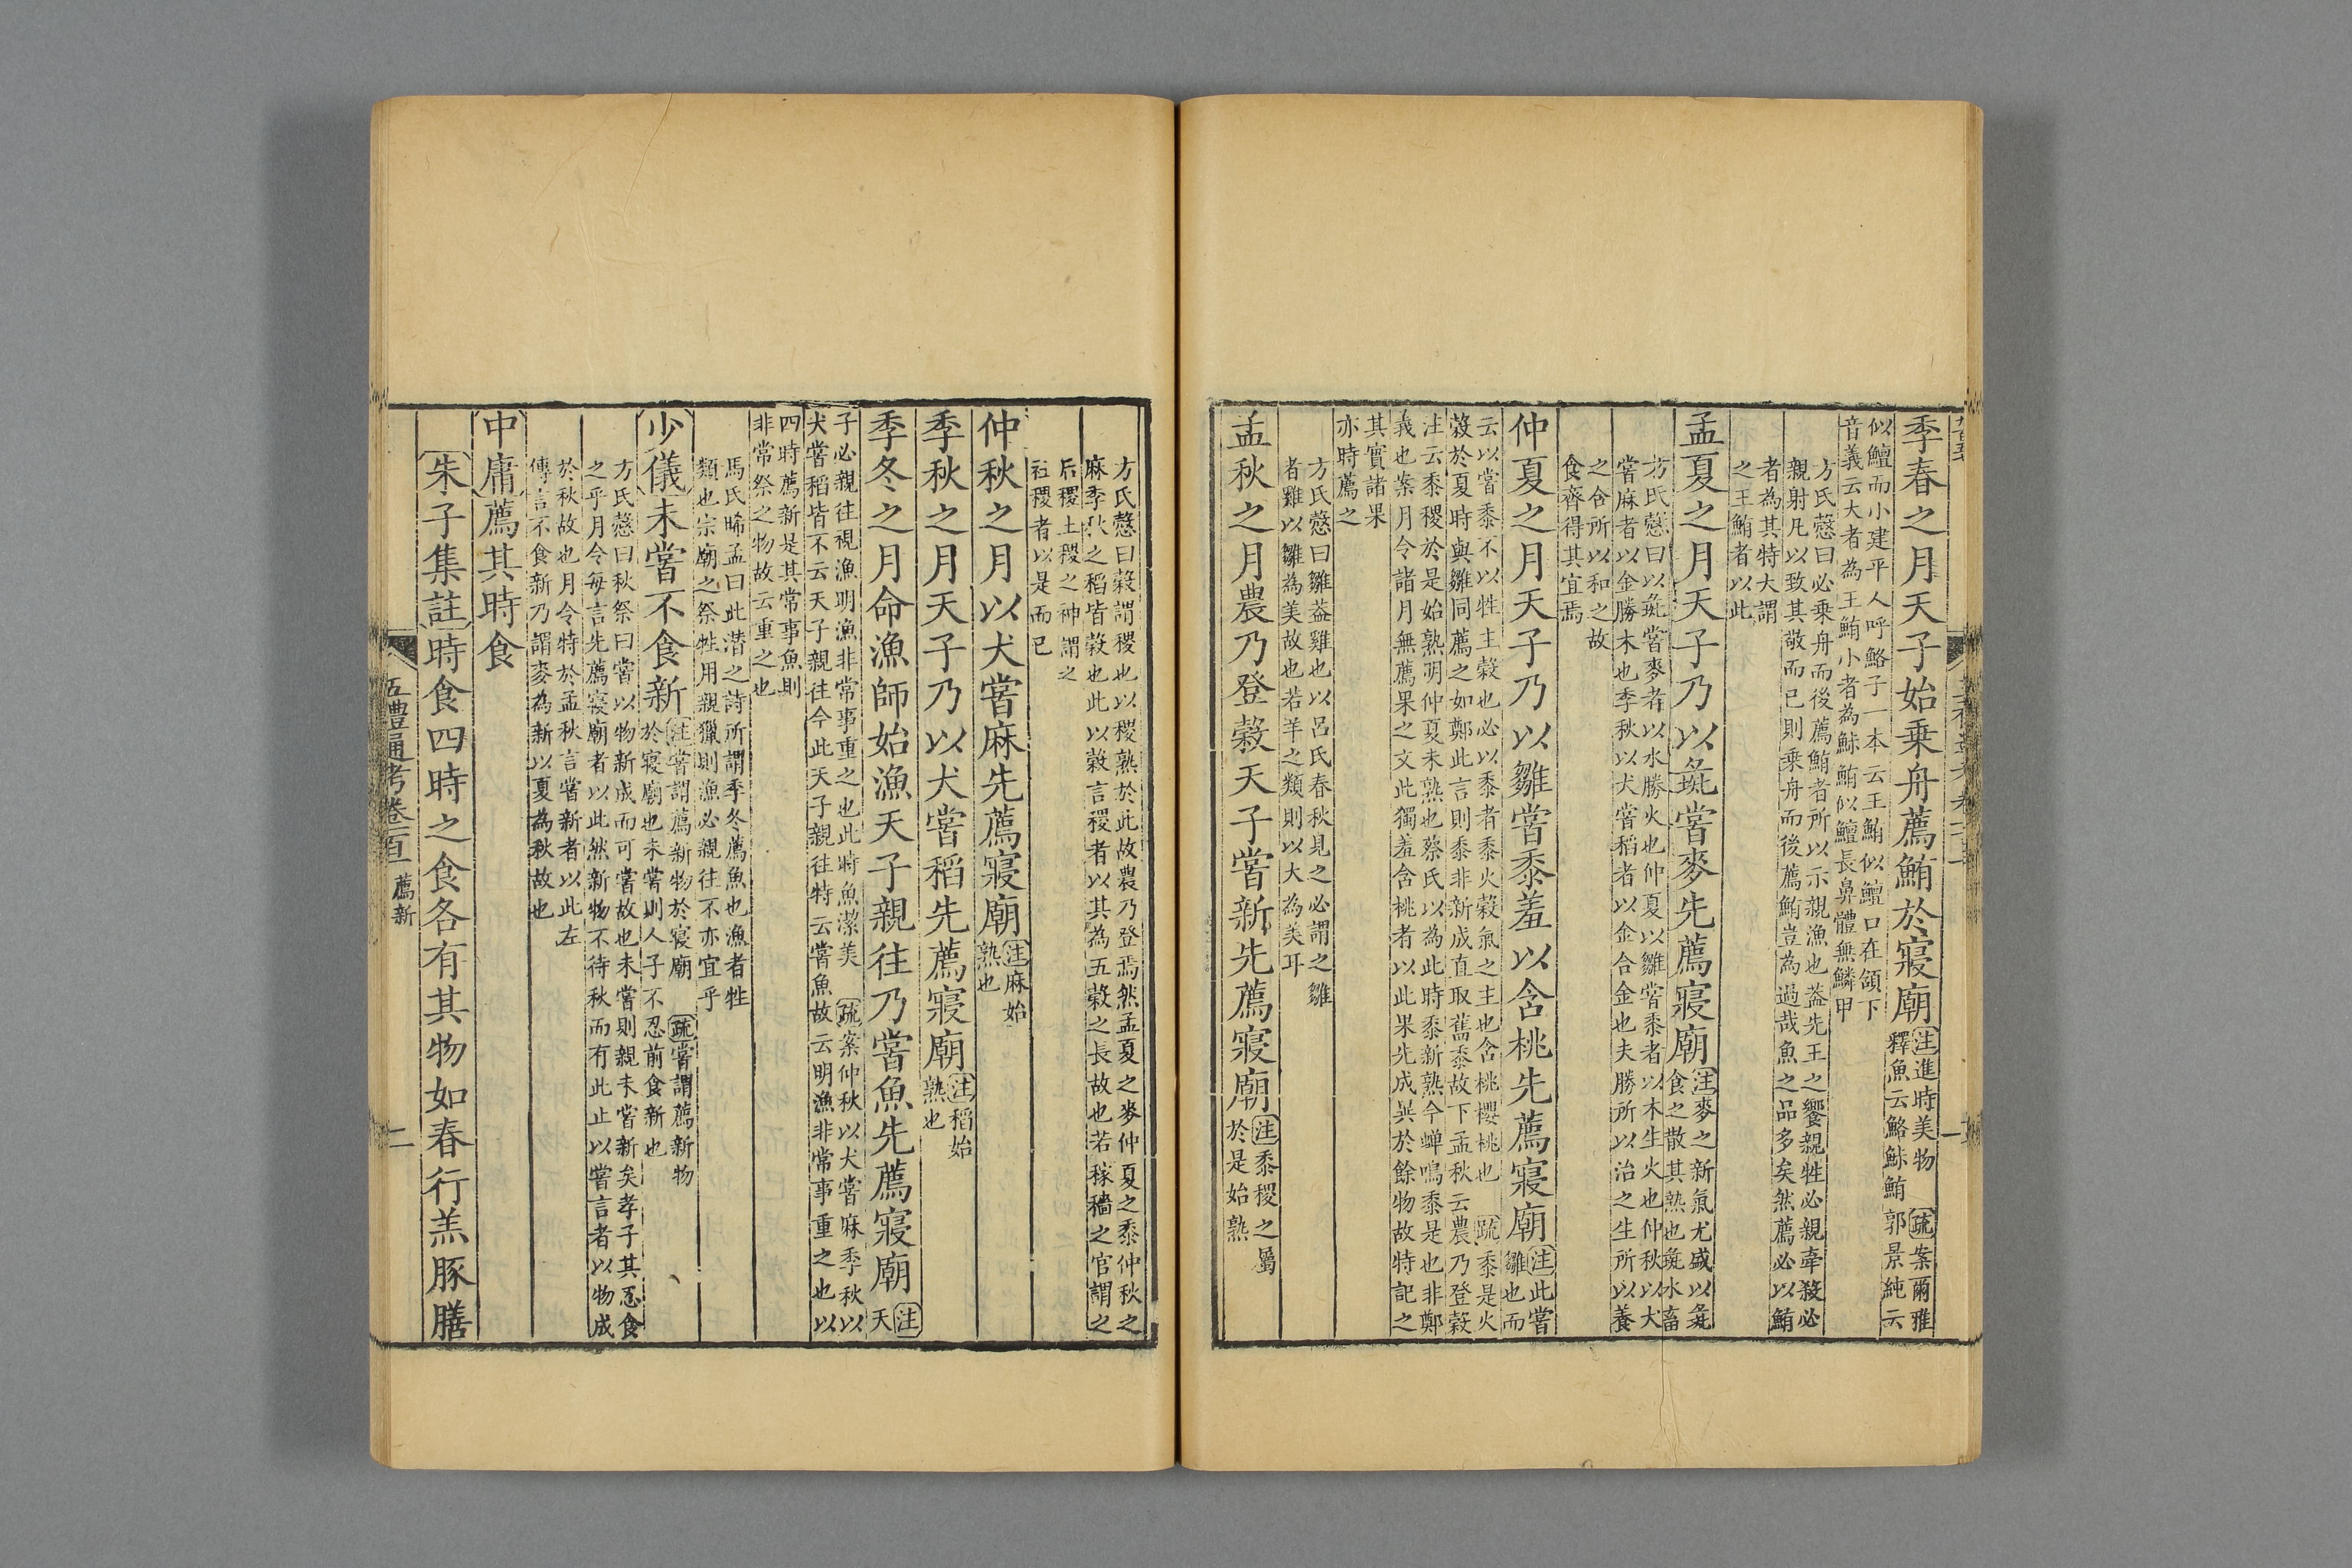 季春之月天子始乗舟薦鮪於寢廟注進時美物疏案爾雅
釋魚云鮥鮛鮪郭景純云
似鱣而小建平人呼鮥子一本云王鮪似鱣口在頷下
音義云大者為王鮪小者為鮛鮪似鱣長鼻體無鱗甲
方氏慤曰必乗舟而後薦鮪者所以示親漁也葢先王之饗親牲必親牽殺必
親射凡以致其敬而已則乗舟而後薦鮪豈為過哉魚之品多矣然薦必以鮪
者為其特大謂
之王鮪者以此
孟夏之月天子乃以彘嘗麥先薦寢廟注麥之新氣尤盛以彘
食之散其熱也彘水畜
方氏慤曰以彘嘗麥者以水勝火也仲夏以雛嘗黍者以木生火也仲秋以犬
嘗麻者以金勝木也季秋以犬嘗稻者以金合金也夫勝所以治之生所以養
之合所以和之故
食齊得其宜焉
仲夏之月天子乃以雛嘗黍羞以含桃先薦寢廟注此嘗
雛也而
云以嘗黍不以牲主穀也必以黍者黍火穀氣之主也含桃櫻桃也疏黍是火
穀於夏時與雛同薦之如鄭此言則黍非新成直取舊黍故下孟秋云農乃登穀
注云黍稷於是始熟明仲夏未熟也蔡氏以為此時黍新熟今蟬鳴黍是也非鄭
義也案月令諸月無薦果之文此獨羞含桃者以此果先成異於餘物故特記之
其實諸果
亦時薦之
方氏慤曰雛葢雞也以呂氏春秋見之必謂之雛
者雞以雛為美故也若羊之類則以大為美耳
孟秋之月農乃登穀天子嘗新先薦寢廟注黍稷之屬
於是始熟
方氏慤曰穀謂稷也以稷熟於此故農乃登焉然孟夏之麥仲夏之黍仲秋之
麻季秋之稻皆穀也此以穀言稷者以其為五穀之長故也若稼穡之官謂之
后稷土穀之神謂之
社稷者以是而已
仲秋之月以犬嘗麻先薦寢廟注麻始
熟也
季秋之月天子乃以犬嘗稻先薦寢廟注稻始
熟也
季冬之月命漁師始漁天子親往乃嘗魚先薦寢廟注
天
子必親往視漁明漁非常事重之也此時魚潔美疏案仲秋以犬嘗麻季秋以
犬嘗稻皆不云天子親往今此天子親往特云嘗魚故云明漁非常事重之也以
四時薦新是其常事魚則
非常祭之物故云重之也
馬氏晞孟曰此潛之詩所謂季冬薦魚也漁者牲
類也宗廟之祭牲用親獵則漁必親往不亦宜乎
少儀未嘗不食新注嘗謂薦新物於寢廟疏嘗謂薦新物
於寢廟也未嘗則人子不忍前食新也
方氏慤曰秋祭曰嘗以物新成而可嘗故也未嘗則親未嘗新矣孝子其忍食
之乎月令每言先薦寢廟者以此然新物不待秋而有此止以嘗言者以物成
於秋故也月令特於孟秋言嘗新者以此左
傳言不食新乃謂麥為新以夏為秋故也
中庸薦其時食
朱子集註時食四時之食各有其物如春行羔豚膳
五禮通考卷一百一 薦新
二